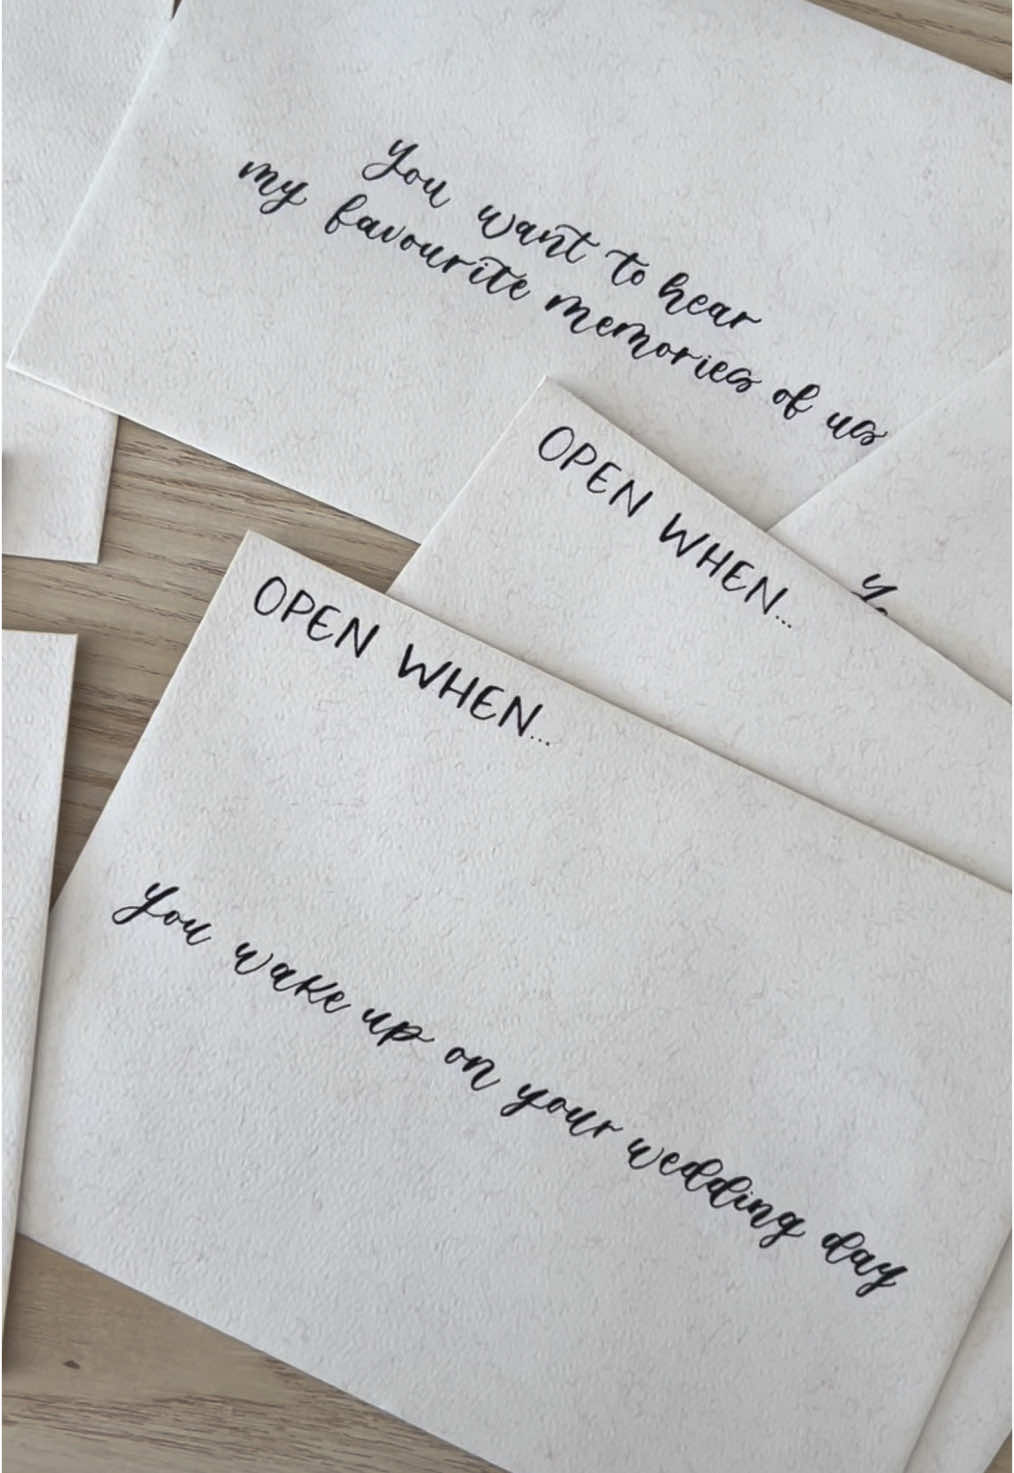 You want to hear
my favourite memories of us
OPEN WHEN...
OPEN WHEN...
You wake up on your wedding day